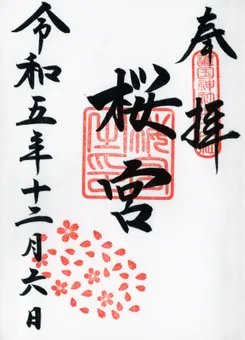 奉拝
桜宮
令和五年十二月六日